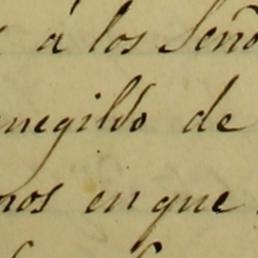 á los Seño
megildo de
nos en que